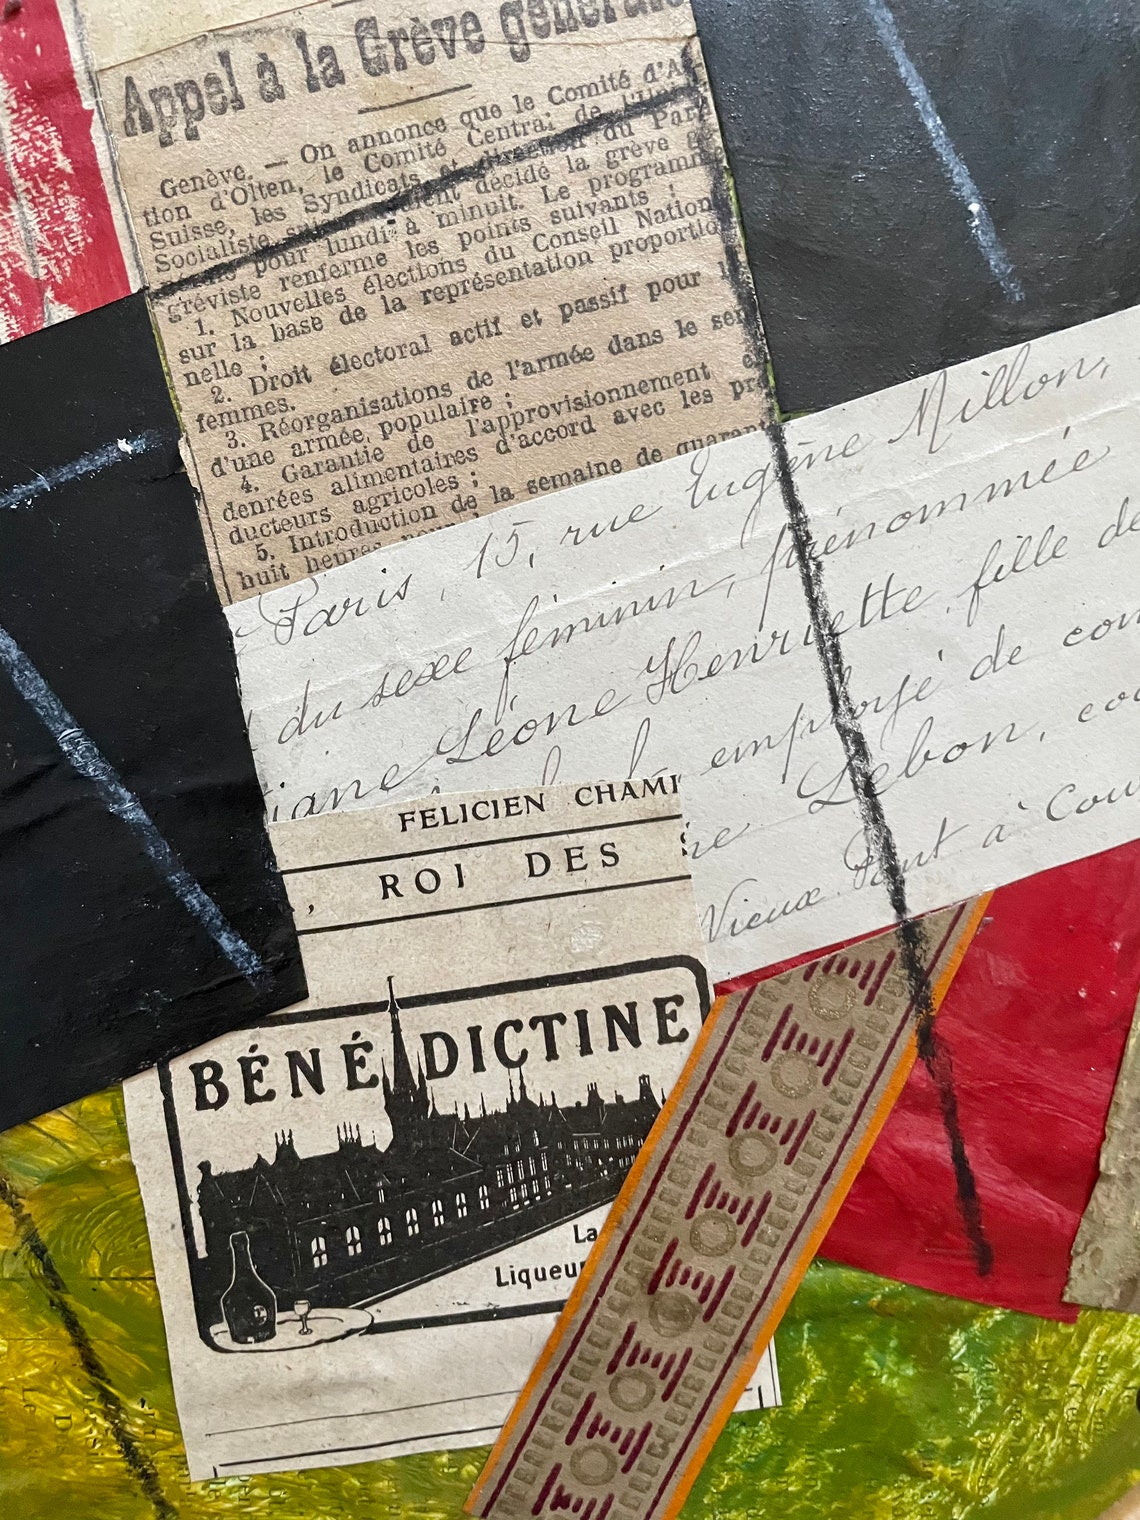 Appel à la Grève générale
Genève. — On annonce que le Comité d'Ac
tion d'Olten, le Comité Central de l'Un
Suisse, les Syndicats et direction du Parti
Socialiste décidé la grève gé
pour lundi à minuit. Le programm
gréviste renferme les points suivants :
1. Nouvelles élections du Conseil Nation
sur la base de la représentation proportio
nelle ;
2. Droit électoral actif et passif pour l
femmes.
3. Réorganisations de l'armée dans le sen
d'une armée populaire ;
4. Garantie de l'approvisionnement e
denrées alimentaires d'accord avec les pro
ducteurs agricoles ;
5. Introduction de la semaine de quarant
huit heures
Paris, 15, rue Eugène Millon,
du sexe féminin, prénommée
iane Léone Henriette, fille de
employé de com
ne Lebon, cou
Vieux Pont à Cou
FELICIEN CHAMP
, ROI DES
BÉNÉDICTINE
La
Liqueur
Le